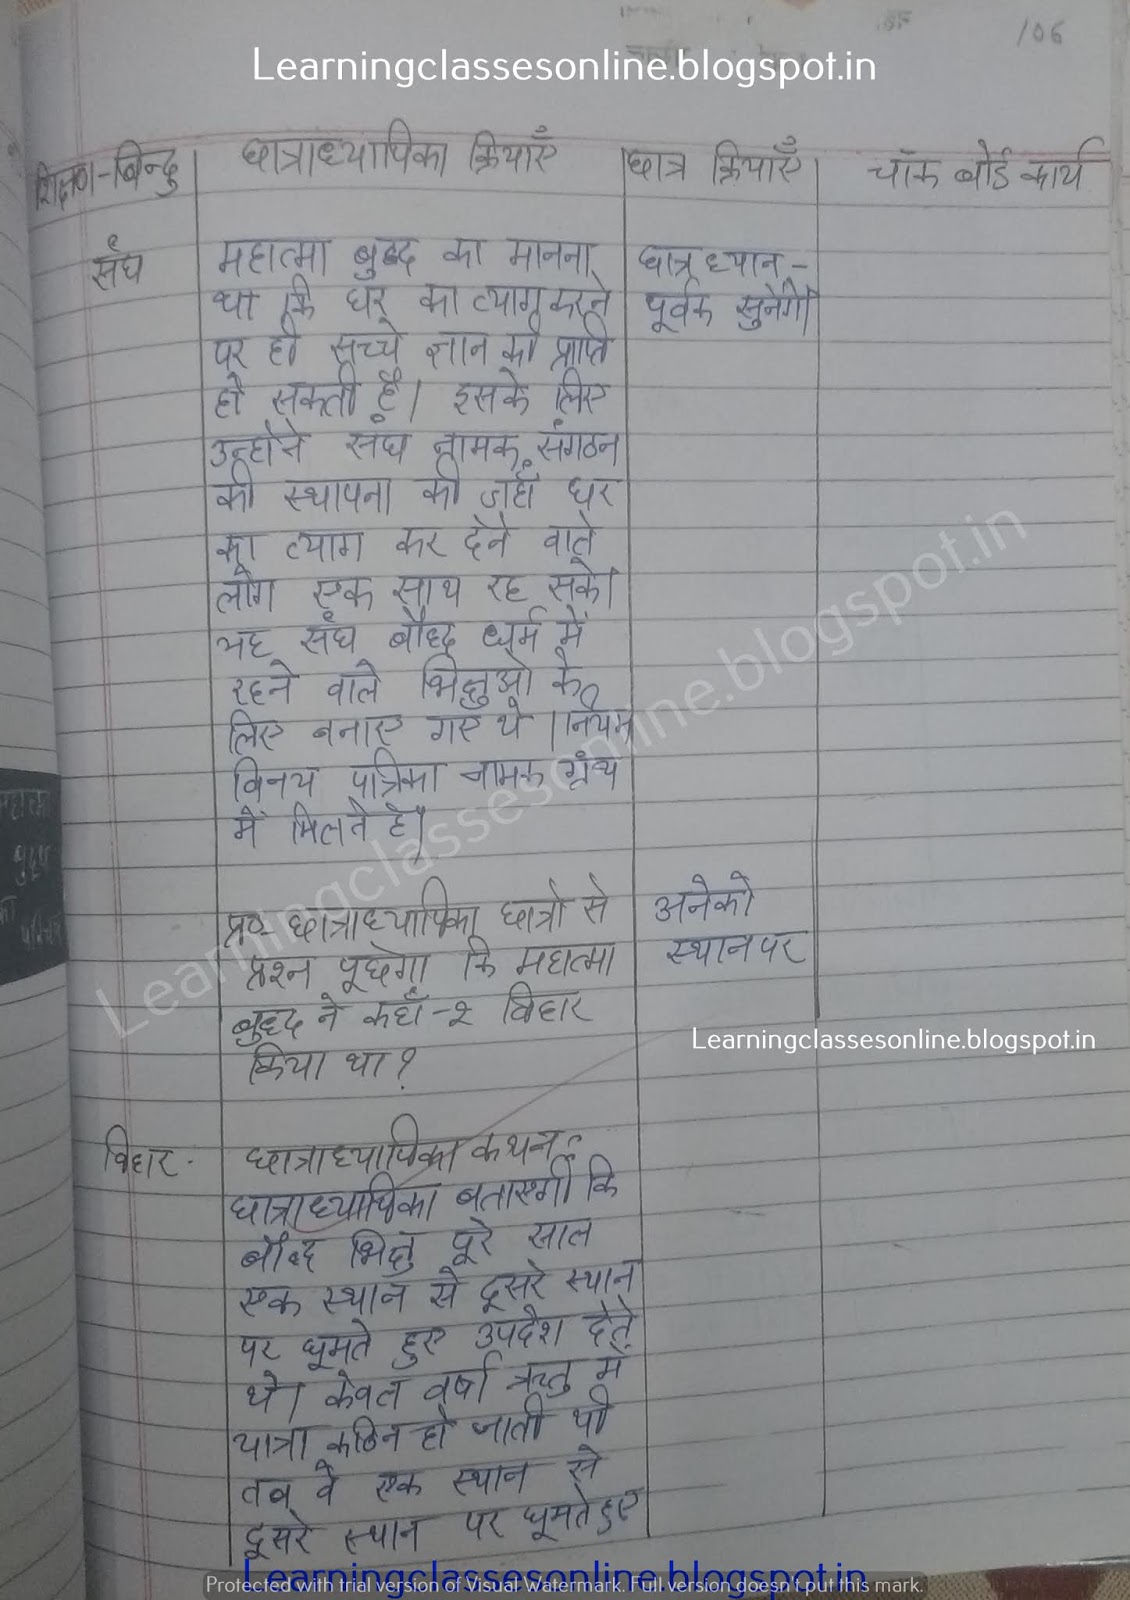 106
Learningclassesonline.blogspot.in
शिक्षण-बिन्दु
छात्राध्यापिका क्रियाएँ
छात्र क्रियाएँ
चॉक बोर्ड कार्य
संघ
महात्मा बुद्ध का मानना
था कि घर का त्याग करने
पर ही सच्चे ज्ञान की प्राप्ति
हो सकती है। इसके लिए
उन्होंने संघ नामक संगठन
की स्थापना की जहाँ घर
का त्याग कर देने वाले
लोग एक साथ रह सके।
यह संघ बौद्ध धर्म में
रहने वाले भिक्षुओ के
लिए बनाए गए थे। नियम
विनय पत्रिका नामक ग्रंथ
में मिलते है।
छात्र ध्यान-
पूर्वक सुनेगे।
प्र०- छात्राध्यापिका छात्रो से
प्रश्न पूछेगा कि महात्मा
बुद्ध ने कहाँ-२ विहार
किया था?
अनेको
स्थान पर
Learningclassesonline.blogspot.in
विहार-
छात्राध्यापिका कथन-
छात्राध्यापिका बताएगी कि
बौद्ध भिक्षु पूरे साल
एक स्थान से दूसरे स्थान
पर घूमते हुए उपदेश देते
थे। केवल वर्षा ऋतु में
यात्रा कठिन हो जाती थी
तब वे एक स्थान से
दूसरे स्थान पर घूमते हुए
Learningclassesonline.blogspot.in
Learningclassesonline.blogspot.in
Protected with trial version of Visual Watermark. Full version doesn't put this mark.